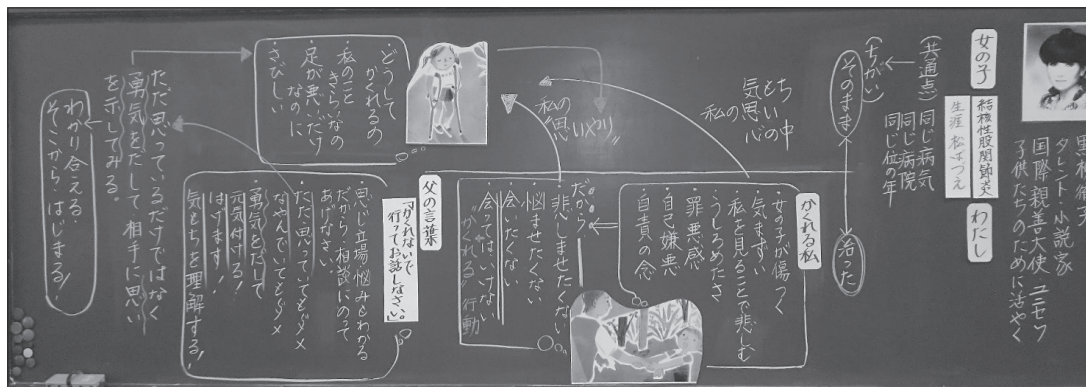 タレント・小説家
国際親善大使 ユニセフ
子供たちのために活やく
女の子
結核性股関節炎
生涯 松よづえ
わたし
(共通点) 同じ病気
同じ病院
同じ位の年
(ちがい)
そのまま
治った
私の
気思心
といの中
ち
かくれる私
・女の子が傷つく
・気まずい
・私を見ることで悲しむ
・うしろめたさ
・罪悪感
・自己嫌悪
・自責の念
だから
・悲しませたくない
・悩ませたくない
・会いたくない
・会ってはいけない
"かくれる"行動
私の
"思いやり"
・どうして
かくれるの
・私のこと
きらいなの
・足が悪いだけ
なのに
・さびしい
父の言葉
「かくれないで、
行ってお話しなさい。」
・思じ立場悩みとわかる
だから、相談にのって
あげなさい。
・ただ思っていてもダメ
・なやんでいてもダメ
・勇気をだして
・元気付ける!
・はげます!
・気もちを理解する!
ただ思っているだけではなく
勇気をだして相手に思い
を示してみる。
わかり合える。
そこからはじまる!